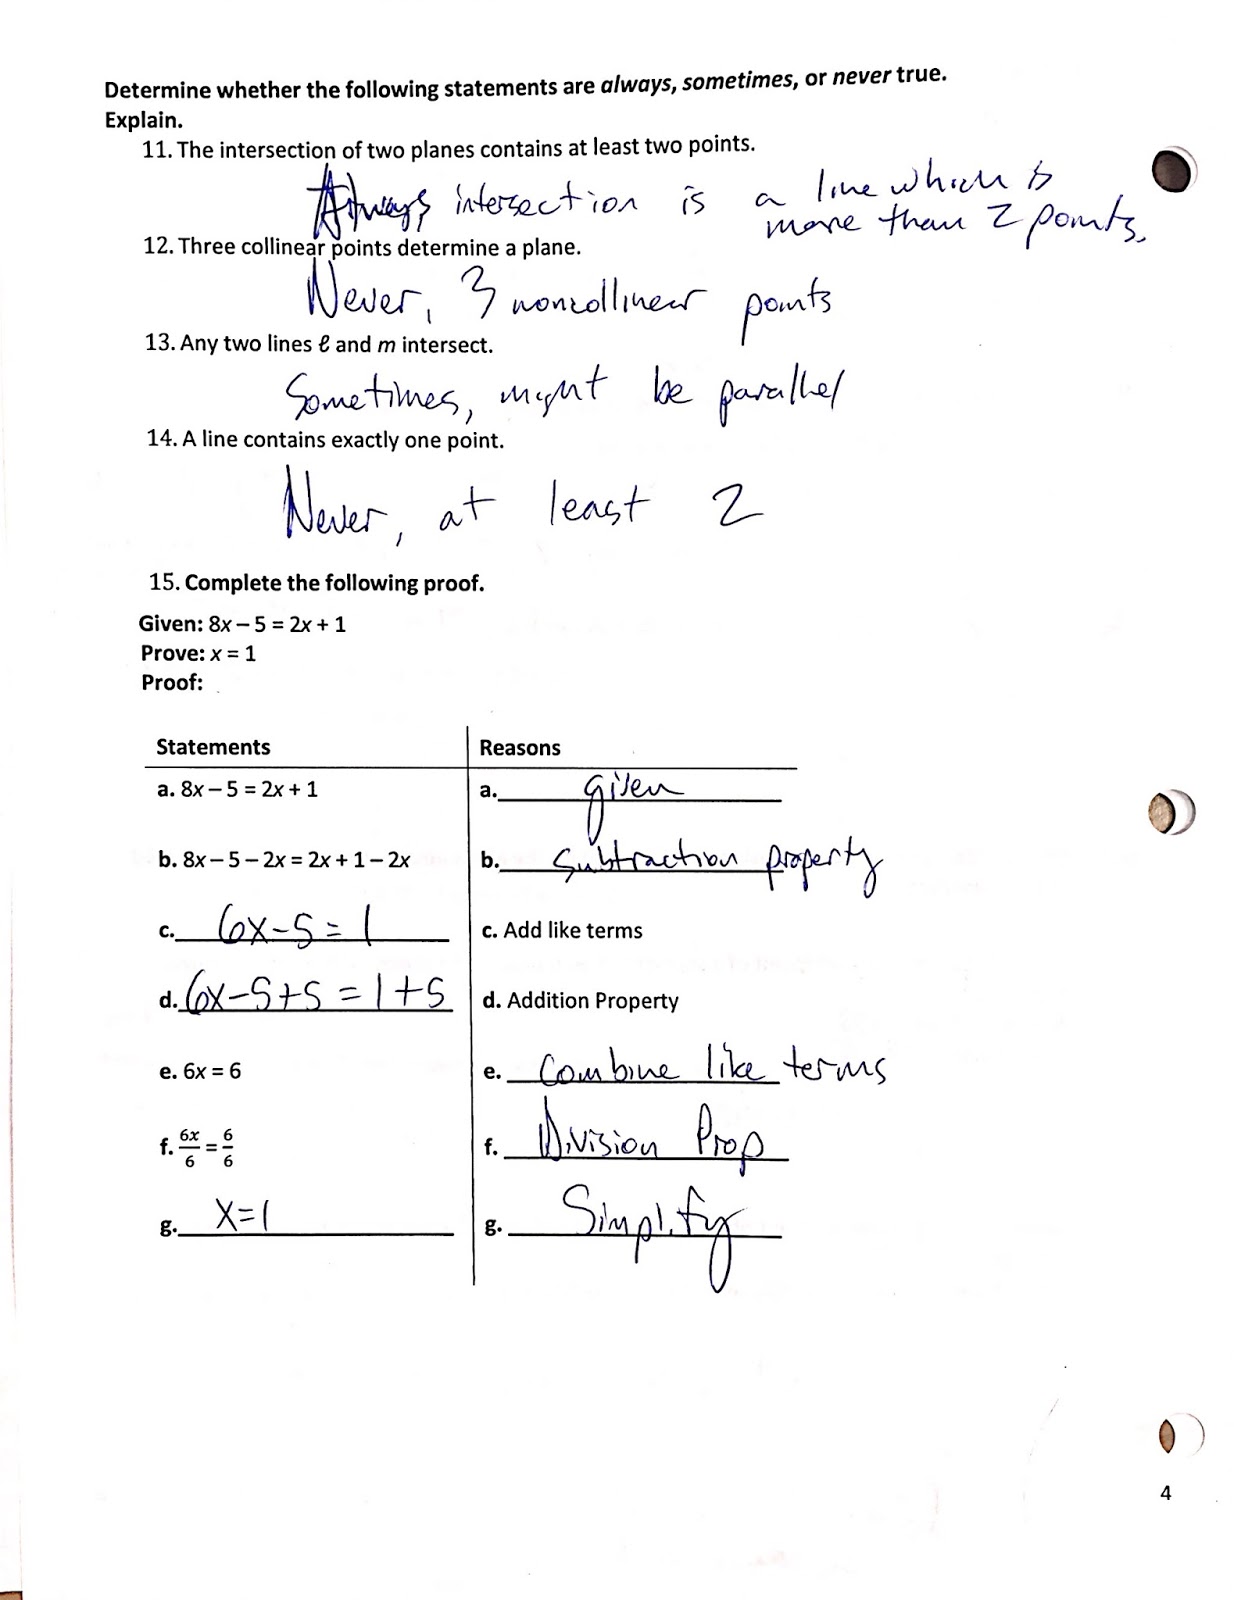 Determine whether the following statements are always, sometimes, or never true.
Explain.
11. The intersection of two planes contains at least two points.
Always, intersection is a line which is
more than 2 points.
12. Three collinear points determine a plane.
Never, 3 noncollinear points
13. Any two lines ℓ and m intersect.
Sometimes, might be parallel
14. A line contains exactly one point.
Never, at least 2
15. Complete the following proof.
Given: 8x – 5 = 2x + 1
Prove: x = 1
Proof:
Statements Reasons
a. 8x – 5 = 2x + 1 a. given
b. 8x – 5 – 2x = 2x + 1 – 2x b. Subtraction property
c. 6x-5=1 c. Add like terms
d. 6x-5+5=1+5 d. Addition Property
e. 6x = 6 e. Combine like terms
f. 6x/6 = 6/6 f. Division Prop
g. x=1 g. Simplify
4